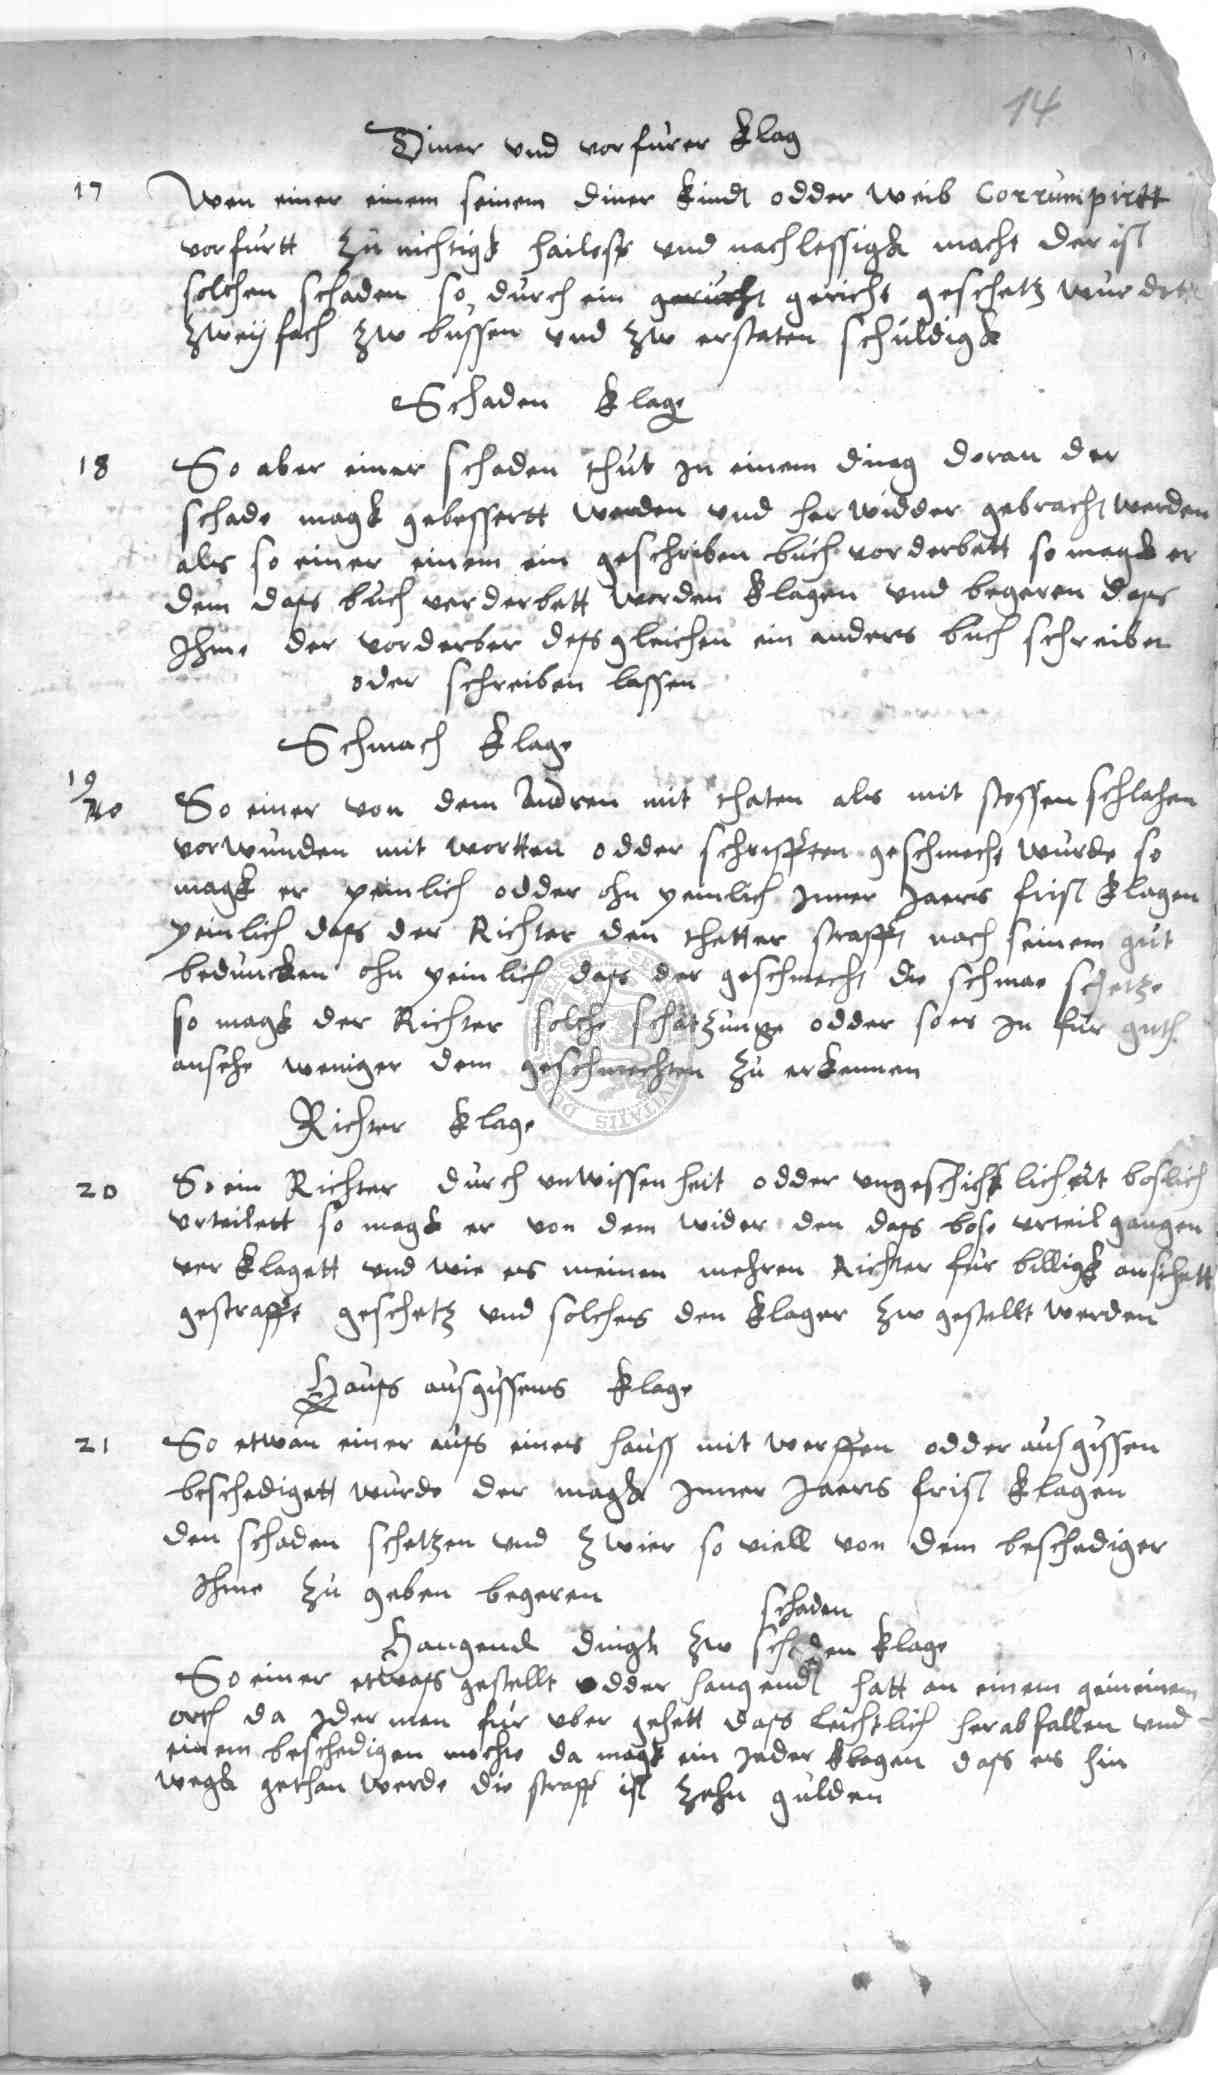 14
Diner vnd vorfurer klag
17 Wen einer einem seinem diner kindt odder weib Corrumpirtt
vorfurtt zu nichtigk hailoss vnd nachlessigk macht der ist
solchen schaden so durch ein gerucht gericht geschetz wurdett
zweyfach zw bussen vnd zw erstaten schuldigk
Schaden klage
18 So aber einer schaden thut in einem ding doran der
schade magk gebessertt werden vnd herwidder gebracht werden
als so einer einem ein geschriben buch vorderbett so magk er
dem dass buch verderbett worden klagen vnd begeren dass
Ihme der vorderber dessgleichen ein anders buch schreibe
oder schreiben lassen
Schmach klage
19 So einer von dem Andren mit thaten als mit stossen schlahen
vorwunden mit wortten odder schrifften geschmecht wurde so
magk er peinlich odder ohn peinlich Inner Jaers frist klagen
peinlich dass der Richter den thetter strafft nach seinem gut
beduncken ohn peinlich dass der geschmecht die schmae schetze
so magk der Richter solche schatzunge odder so es in fur guth
ansehe weniger dem geschmechten zu erkennen
Richter klage
20 So ein Richter durch vnwissenheit odder vngeschicklicheit boslich
vrteilett so magk er von dem wider den dass bose vrteil gangen
verklagett vnd wie es meinen mehren Richter fur billigk ansehett
gestrafft geschetz vnd solches den klager zw gestellt werden
Hauss ausgissens klage
21 So etwan einer auss eines hauss mit werffen odder ausgissen
beschedigett wurde der magk Inner Jaers frist klagen
den schaden schetzen vnd zwier so viell von dem beschediger
Ihme zu geben begeren
schaden
Hangend dingk zw schaden klage
So einer etwass gestellt odder hangendt hatt an einem gemeinem
orth da Iderman fur vber gehett dass leichtlich herabfallen vnd
einem beschedigen mochte da magk ein Jeder klagen dass es hin
wegk gethan werde die straff ist zehn gulden